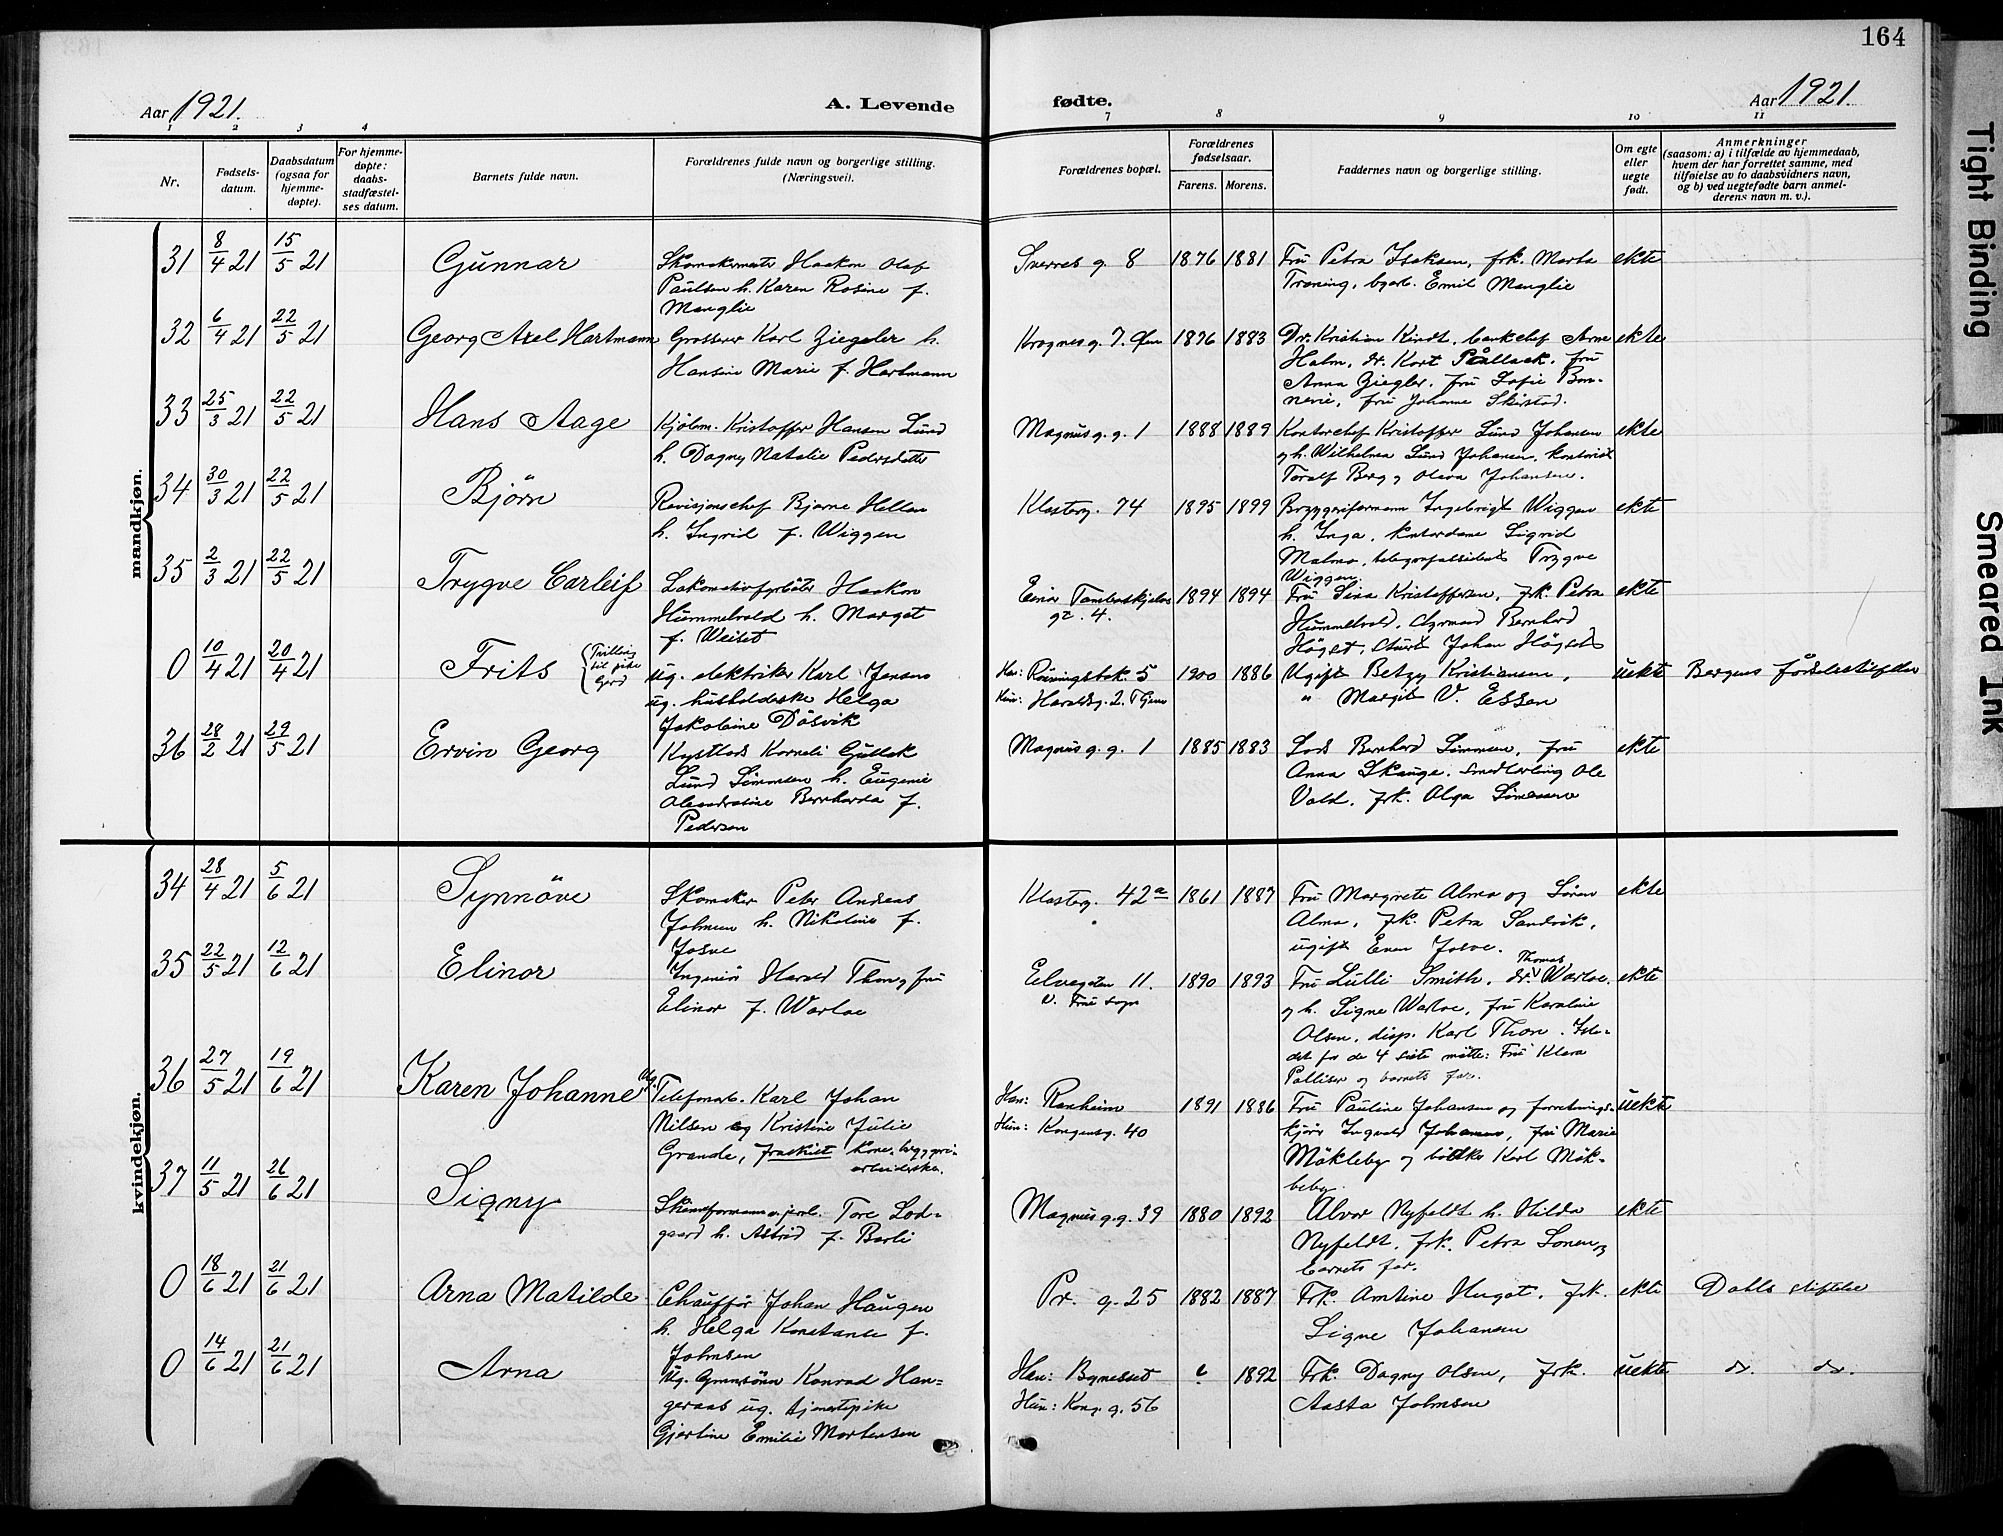 164
Aar 1921.
A. Levende
fødte.
Aar 1921.
1 2 3 4
7 8 9 10 11
Nr.
Fødsels-
datum.
Daabsdatum
(ogsaa for
hjemme-
døpte).
For hjemme-
døpte:
daabs-
stadfæstel-
ses datum.
Barnets fulde navn.
Forældrenes fulde navn og borgerlige stilling.
(Næringsvei).
Forældrenes bopæl.
Forældrenes
fødselsaar.
Farens. Morens.
Faddernes navn og borgerlige stilling.
Om egte
eller
uegte
født.
Anmerkninger
(saasom: a) i tilfælde av hjemmedaab,
hvem der har forrettet samme, med
tilføielse av to daabsvidners navn,
og b) ved uegtefødte barn anmel-
derens navn m. v.).
mandkjøn.
31 8/4 21 15/5 21 Gunnar
Skomakermester Haakon Olaf
Paulsen h. Karen Rosine f.
Manglie
Sverres g. 8 1876 1881
Fru Petra Isaksen, frk. Marta
Træning, Emil Manglie
ekte
32 6/4 21 22/5 21 Georg Axel Hartmann
Grosserer Karl Ziegeler h.
Hansine Marie f. Hartmann
Krognes g. 7. 1876 1883
Dr. Kristian Kindt, bankchef Arne
Halm, dr. Kort Pållack, fru
Anna Ziegler, fru Sofie Bon-
nevie, fru Johanne Skirstad.
ekte
33 25/3 21 22/5 21 Hans Aage
Kjølm. Kristoffer Hansen Lund
h. Dagny Natalie Pedersdatter
Magnus g. g. 1 1888 1889
Kontorchef Kristoffer Lund Johansen
og h. Wilhelmea Lund Johansen, kontorist
Toralf Berg og Olava Johansen.
ekte
34 30/3 21 22/5 21 Bjørn
Revisjonschef Bjarne Hellan
h. Ingrid f. Wiggen
Klosterg. 74 1895 1899
Bryggeriformann Ingebrigt Wiggen
h. Inga, kontordame Sigrid
Malmo, Trygve
Wiggen.
ekte
35 2/3 21 22/5 21 Trygve Carleif
Lokomotivfyrbøter Haakon
Hummelvold h. Margot
f. Weiset
Einar Tambaskjelves
gt. 4. 1894 1894
Fru Sina Kristoffersen, frk. Petra
Hummelvold, Bernhard
Høgset, Johan Høgset
ekte
0 10/4 21 20/4 21 Frits
Tvilling
til pike
Gerd
Ug. elektriker Karl Jensen
ug. husholderske Helga
Jakobine Dåsvik
Han: Rønningsbek. 5
Hun: Haraldsg. 2. 1900 1886
Ugift Betzy Kristiansen,
" Margit V. Essen
uekte
Bergens fødselsstiftelse
36 28/2 21 29/5 21 Ervin Georg
Kystlods Korneli Gullek
Lund Simmsen h. Eugenie
Bernharda f.
Pedersen
Magnus g. g. 1 1885 1883
Lods Bernhard Simmsen, fru
Anna Skauge, smedlærling Ole
Vold, frk. Olga Simmsen
ekte
kvindekjøn.
34 28/4 21 5/6 21 Synnöve
Skomaker Peter Andreas
Johnsen h. Nikoline f.
Josve
Klosterg. 42a 1861 1887
Fru Margrete Alma og Sören
Alma, frk. Petra Sandvik,
ugift Even Josve.
ekte
35 22/5 21 12/6 21 Elinor
Ingeniör Harald Thon og fru
Elinor f. Warloe
Elvegaten 11.
V. Frue sogn 1890 1893
Fru Lulli Smith, dr. Thomas Warloe,
og h. Signe Warloe, fru Karoline
Olsen, disp. Karl Thon. Iste-
det for de 4 siste møtte: Fru Klara
Palliser og barnets far.
ekte
36 27/5 21 19/6 21 Karen Johanne
Ug. Telefonarb. Karl Johan
Nilsen og Kristine Julie
Grande, fraskilt kone, bryggeri-
arbeiderske.
Han: Ranheim
Hun: Kongensg. 40 1891 1886
Fru Pauline Johansen og forretnings-
kjörer Ingvald Johansen, fru Marie
Mökleby og bödker Karl Mök-
leby.
uekte
37 11/5 21 26/6 21 Signy
Tore Lod-
gaard h. Astrid f. Berli
Magnus g. g. 39 1880 1892
Alvor Nyfeldt h. Hilda
Nyfeldt, frk. Petra Sonen og
barnets far.
ekte
0 18/6 21 21/6 21 Arna Matilde
Chauffør Johan Haugen
h. Helga Konstanse f.
Johnsen
Pr. g. 25 1882 1887
Frk. Amtine Hugot, frk.
Signe Johansen
ekte
Dahls stiftelse
0 14/6 21 21/6 21 Arna
Ug. Konrad Han-
geraas ug. tjenestepike
Gjertine Emilie Mortensen
Han: Bynesset
Hun: Kong. g. 56 1892
Frk. Dagny Olsen, frk.
Aasta Johnsen
uekte
do. do.
Tight Binding
Smeared Ink